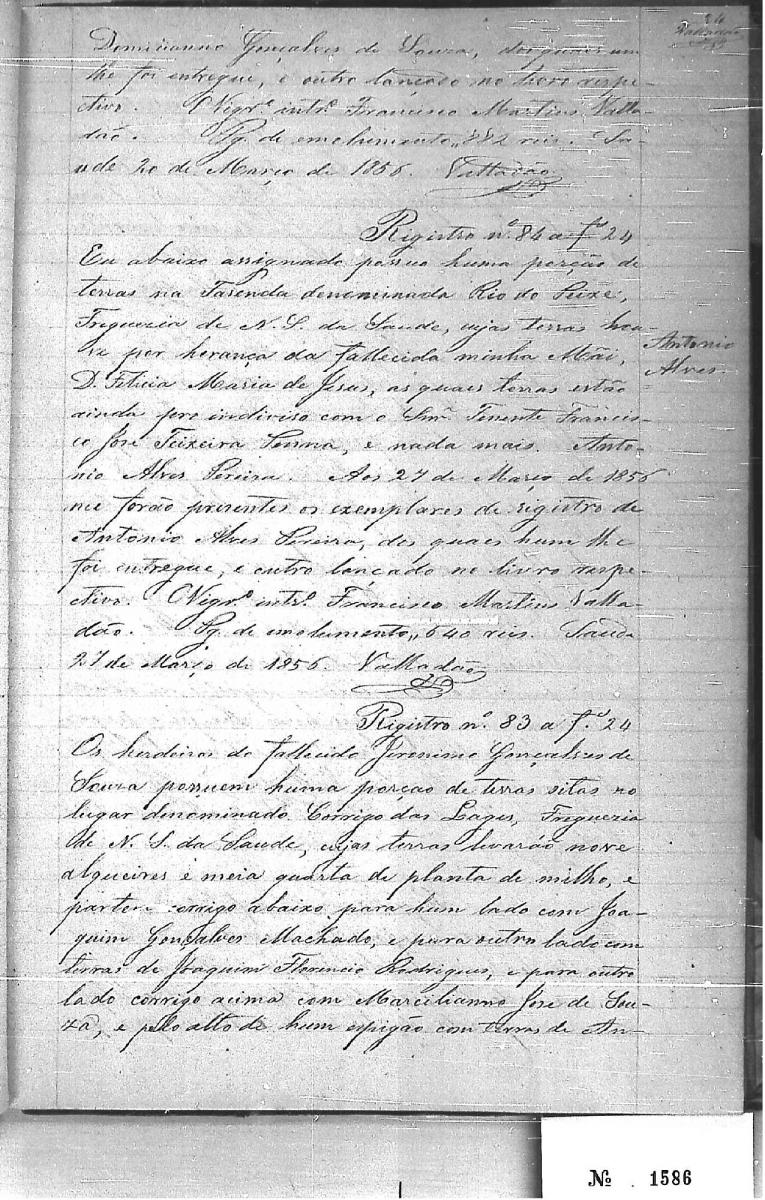 24
Valladão
Domicianno Gonçalves de Souza, dos quaes um
lhe foi entregue, e outro lançado no livro respe-
ctivo. O Vigrº intrº Francisco Martins Valla-
dão. Pg. de emolumento,, 882 reis. Sa-
ude 20 de Março de 1856. Valladão
Registro nº 84 a fs 24
Eu abaixo assignado possuo huma porção de
terras na Fasenda denominada Rio do Peixe,
Freguezia de N. S. da Saude, cujas terras hou-
ve por herança da fallecida minha Mãi,
D. Felicia Maria de Jesus, as quaes terras estão
ainda pro indiviso com o Snr. Tenente Francis-
co José Teixeira Penna, e nada mais. Anto-
nio Alves Pereira. Aos 27 de Março de 1856
me forão presentes os exemplares de registro de
Antonio Alves Pereira, dos quaes hum lhe
foi entregue, e outro lançado no livro respe-
ctivo. O Vigrº intrº Francisco Martins Valla-
dão. Pg. de emolumento,, 640 reis. Saude
27 de Março de 1856. Valladão
Antonio
Alves
Registro nº 83 a fs 24
Os herdeiros do fallecido Jeronimo Gonçalves de
Souza possuem huma porção de terras sitas no
lugar denominado Corrigo das Lages, Freguezia
de N. S. da Saude, cujas terras levarão nove
alqueires e meia quarta de planta de milho, e
partem corrigo abaixo para hum lado com Joa-
quim Gonçalves Machado, e para outro lado com
terras de Joaquim Florencio Rodrigues, e para outro
lado corrigo acima com Marcilianno José de Sou-
za, e pelo alto de hum espigão com terras de An-
Nº 1586